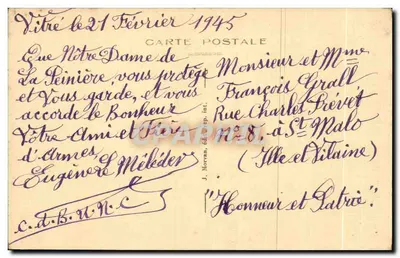 Vitré le 21 Février 1945
CARTE POSTALE
Que Notre Dame de
La Peinière vous protège
et Vous garde, et vous
accorde le Bonheur
Votre Ami et Frère
d'Armes,
Eugène
C.d.B.U.N.C
Monsieur et Mme
François Grall
Rue Charles Prévet
N° 8. à St Malo
(Ille et Vilaine)
"Honneur et Patrie".